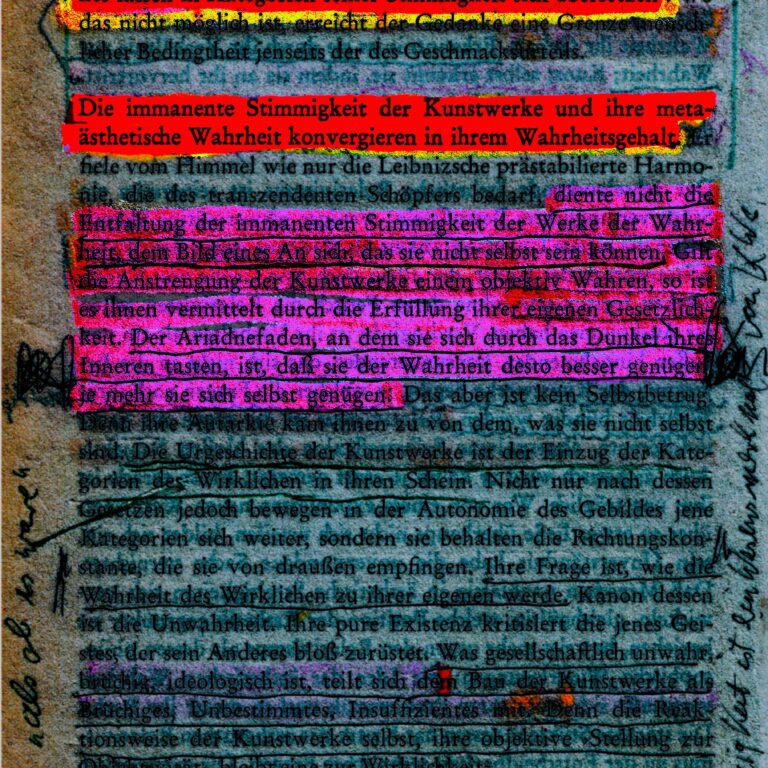 das nicht möglich ist, erreicht der Gedanke eine Grenze mensch-
licher Bedingtheit jenseits der des Geschmacksurteils.
Die immanente Stimmigkeit der Kunstwerke und ihre meta-
ästhetische Wahrheit konvergieren in ihrem Wahrheitsgehalt. Er
fiele vom Himmel wie nur die Leibnizsche prästabilierte Harmo-
nie, die des transzendenten Schöpfers bedarf, diente nicht die
Entfaltung der immanenten Stimmigkeit der Werke der Wahr-
heit, dem Bild eines An sich, das sie nicht selbst sein können. Gilt
die Anstrengung der Kunstwerke einem objektiv Wahren, so ist
es ihnen vermittelt durch die Erfüllung ihrer eigenen Gesetzlich-
keit. Der Ariadnefaden, an dem sie sich durch das Dunkel ihres
Inneren tasten, ist, daß sie der Wahrheit desto besser genügen,
je mehr sie sich selbst genügen. Das aber ist kein Selbstbetrug.
Denn ihre Autarkie kam ihnen zu von dem, was sie nicht selbst
sind. Die Urgeschichte der Kunstwerke ist der Einzug der Kate-
gorien des Wirklichen in ihren Schein. Nicht nur nach dessen
Gesetzen jedoch bewegen in der Autonomie des Gebildes jene
Kategorien sich weiter, sondern sie behalten die Richtungskon-
stante, die sie von draußen empfingen. Ihre Frage ist, wie die
Wahrheit des Wirklichen zu ihrer eigenen werde. Kanon dessen
ist die Unwahrheit. Ihre pure Existenz kritisiert die jenes Gei-
stes, der sein Anderes bloß zurüstet. Was gesellschaftlich unwahr,
brüchig, ideologisch ist, teilt sich dem Bau der Kunstwerke als
Brüchiges, Unbestimmtes, Insuffizientes mit. Denn die Reak-
tionsweise der Kunstwerke selbst, ihre objektive ›Stellung zur
"als ob es wäre"